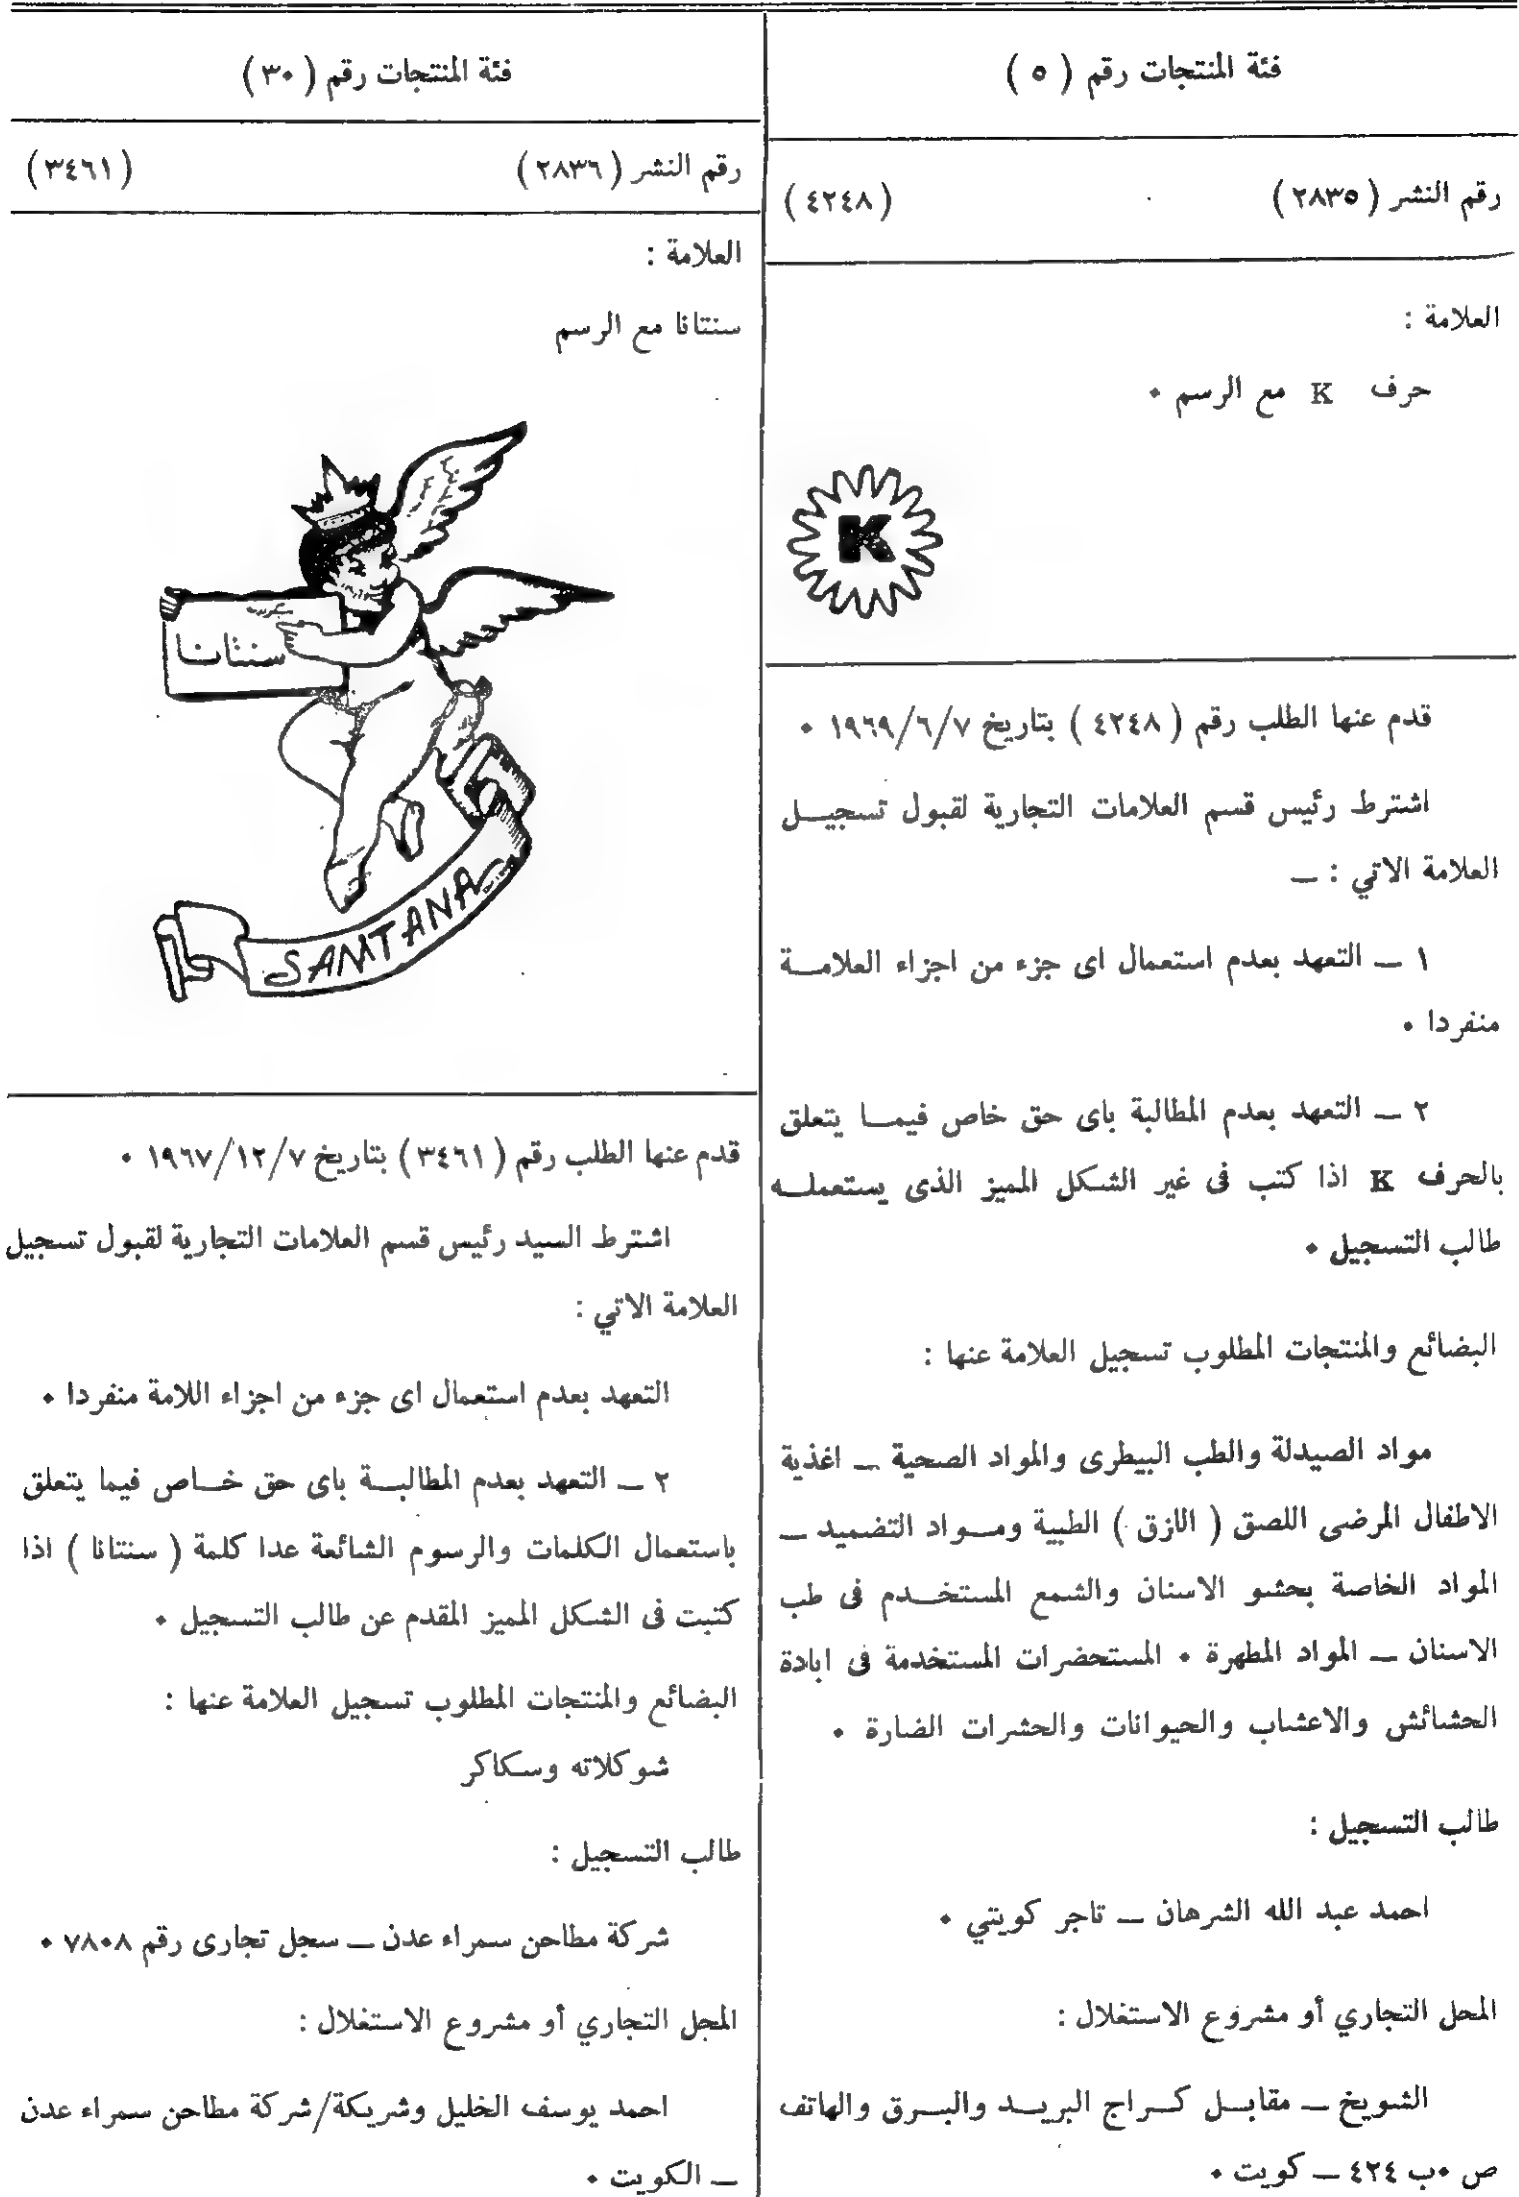 فئة المنتجات رقم ( ٥ )
رقم النشر ( ٢٨٣٥ ) ( ٤٢٤٨ )
العلامة :
حرف K مع الرسم ٠
K
قدم عنها الطلب رقم ( ٤٢٤٨ ) بتاريخ ١٩٦٩/٦/٧ ٠
اشترط رئيس قسم العلامات التجارية لقبول تسجيــل
العلامة الاتي : ــ
١ ــ التعهد بعدم استعمال اى جزء من اجزاء العلامــة
منفردا ٠
٢ ــ التعهد بعدم المطالبة باى حق خاص فيمــا يتعلق
بالحرف K اذا كتب فى غير الشكل المميز الذى يستعملــه
طالب التسجيل ٠
البضائع والمنتجات المطلوب تسجيل العلامة عنها :
مواد الصيدلة والطب البيطرى والمواد الصحية ــ اغذية
الاطفال المرضى اللصق ( الازق ) الطبية ومــواد التضميد ــ
المواد الخاصة بحشو الاسنان والشمع المستخــدم فى طب
الاسنان ــ المواد المطهرة ٠ المستحضرات المستخدمة فى ابادة
الحشائش والاعشاب والحيوانات والحشرات الضارة ٠
طالب التسجيل :
احمد عبد الله الشرهان ــ تاجر كويتي ٠
المحل التجاري أو مشروع الاستغلال :
الشويخ ــ مقابــل كــراج البريــد والبــرق والهاتف
ص ٠ب ٤٢٤ ــ كويت ٠
فئة المنتجات رقم ( ٣٠ )
رقم النشر ( ٢٨٣٦ ) ( ٣٤٦١ )
العلامة :
سنتانا مع الرسم
سنتانا
SAMTANA
قدم عنها الطلب رقم ( ٣٤٦١ ) بتاريخ ١٩٦٧/١٢/٧ ٠
اشترط السيد رئيس قسم العلامات التجارية لقبول تسجيل
العلامة الاتي :
التعهد بعدم استعمال اى جزء من اجزاء اللامة منفردا ٠
٢ ــ التعهد بعدم المطالبــة باى حق خــاص فيما يتعلق
باستعمال الكلمات والرسوم الشائعة عدا كلمة ( سنتانا ) اذا
كتبت فى الشكل المميز المقدم عن طالب التسجيل ٠
البضائع والمنتجات المطلوب تسجيل العلامة عنها :
شوكلاته وسكاكر
طالب التسجيل :
شركة مطاحن سمراء عدن ــ سجل تجارى رقم ٧٨٠٨ ٠
المجل التجاري أو مشروع الاستغلال :
احمد يوسف الخليل وشريكة/شركة مطاحن سمراء عدن
ــ الكويت ٠